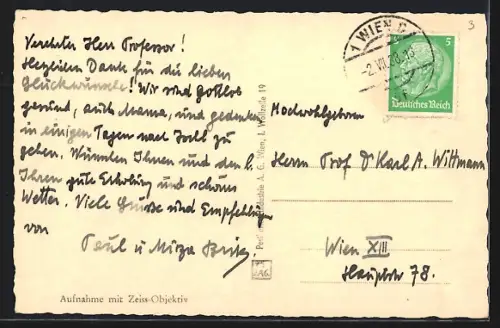 3
Verehrter Herr Professor!
Herzlichen Dank für die lieben
Glückwünsche! Wir sind gottlob
gesund, auch Mama, und gedenken
in einigen Tagen nach Ischl zu
gehen. Wünschen Ihnen und den l.
Ihren gute Erholung und schönes
Wetter. Viele Grüße und Empfehlungen
von
Paul u Mirza
Aufnahme mit Zeiss-Objektiv
A. G. Wien, I. Wollzeile 19
1 WIEN
-2.VII.
5
Deutsches Reich
Hochwohlgeboren
Herrn Prof Dr Karl A. Wittmann
Wien XIII
Hauptstr 78.